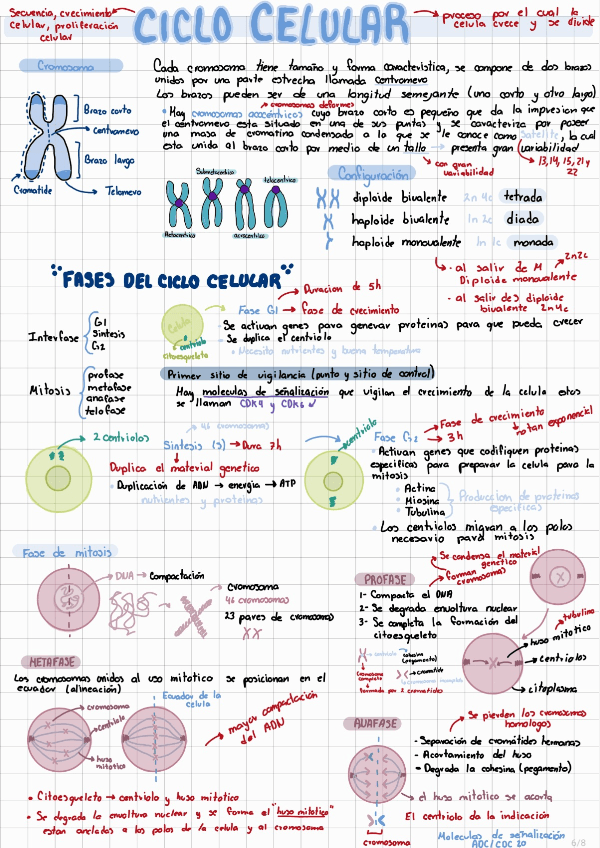 Secuencia, crecimiento
celular, proliferación
celular
CICLO CELULAR
proceso por el cual la
celula crece y se divide
Cromosoma
Cada cromosoma tiene tamaño y forma caracteristica, se compone de dos brazos
unidos por una parte estrecha llamada centromero
Los brazos pueden ser de una longitud semejante (uno corto y otro largo)
cromosomas deformes
• Hay cromosomas acrocéntricos cuyo brazo corto es pequeño que da la impresion que
el centromero esta situado en una de sus puntas y se caracteriza por poseer
una masa de cromatina condensada a lo que se le conoce como Satelite, la cual
esta unida al brazo corto por medio de un tallo → presenta gran variabilidad
con gran
variabilidad
13, 14, 15, 21 y
22
Brazo corto
centromero
Brazo largo
Cromatide
Telomero
Submetacéntrico
telocentrico
Metacentrico
acrocentrico
Configuración
diploide bivalente 2n 4c tetrada
haploide bivalente 1n 2c diada
haploide monovalente 1n 1c monada
• al salir de M 2n2c
Diploide monovalente
• al salir de S diploide
bivalente 2n4c
"FASES DEL CICLO CELULAR"
Interfase
G1
Sintesis
G2
Mitosis
profase
metafase
anafase
telofase
Celula
centriolo
citoesqueleto
Duracion de 5h
Fase G1 → Fase de crecimiento
• Se activan genes para generar proteinas para que pueda crecer
• Se duplica el centriolo
• Necesito nutrientes y buena temperatura
Primer sitio de vigilancia (punto y sitio de control)
Hay moleculas de señalización que vigilan el crecimiento de la celula estos
se llaman CDK4 y CDK6
2 centriolos
46 cromosomas
Sintesis (S) → Dura 7h
Duplica el material genetico
• Duplicación de ADN → energia → ATP
nutrientes y proteinas
centriolo
Fase G2
Fase de crecimiento
no tan exponencial
3h
• Activan genes que codifiquen proteinas
especificas para preparar la celula para la
mitosis
• Actina
• Miosina
• Tubulina
Produccion de proteinas
especificas
• Los centriolos migran a los polos
necesario para mitosis
Fase de mitosis
DNA → Compactación
cromosoma
46 cromosomas
23 pares de cromosomas
PROFASE
Se condensa el material
genetico
forman
cromosomas
1- Compacta el DNA
2- Se degrada envoltura nuclear
3- Se completa la formación del
citoesqueleto
centriolo
cohesina
(pegamento)
cromosoma
completo
cromatide
cromosoma incompleto
formada por 2 cromatides
tubulina
huso mitotico
centriolos
citoplasma
METAFASE
Los cromosomas unidos al uso mitotico se posicionan en el
ecuador (alineación)
cromosoma
centriolo
huso
mitotico
Ecuador de la
celula
mayor compactación
del ADN
• Citoesqueleto → centriolo y huso mitotico
• Se degrada la envoltura nuclear y se forma el "huso mitotico"
estan anclados a los polos de la celula y al cromosoma
ANAFASE
Se pierden los cromosomas
homologos
- Separación de cromátides hermanas
- Acortamiento del huso
- Degrada la cohesina (pegamento)
el huso mitotico se acorta
El centriolo da la indicación
cromosoma
Moleculas de señalización
ADC/CDC 20
6/8